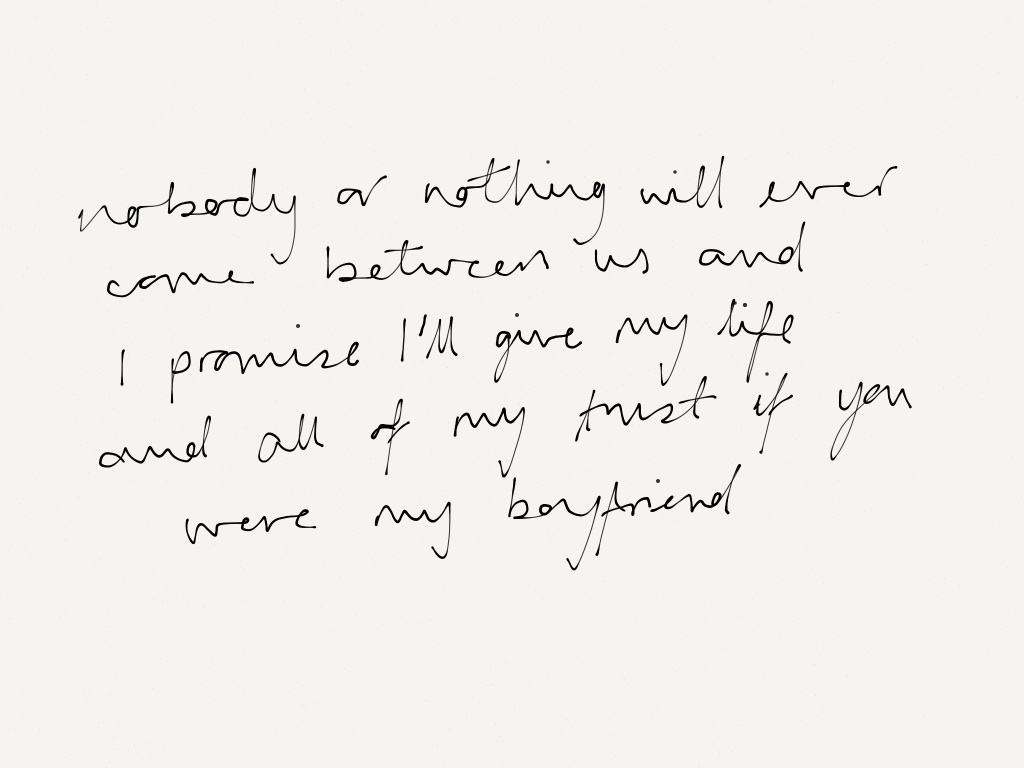 nobody or nothing will ever
come between us and
I promise I'll give my life
and all of my trust if you
were my boyfriend